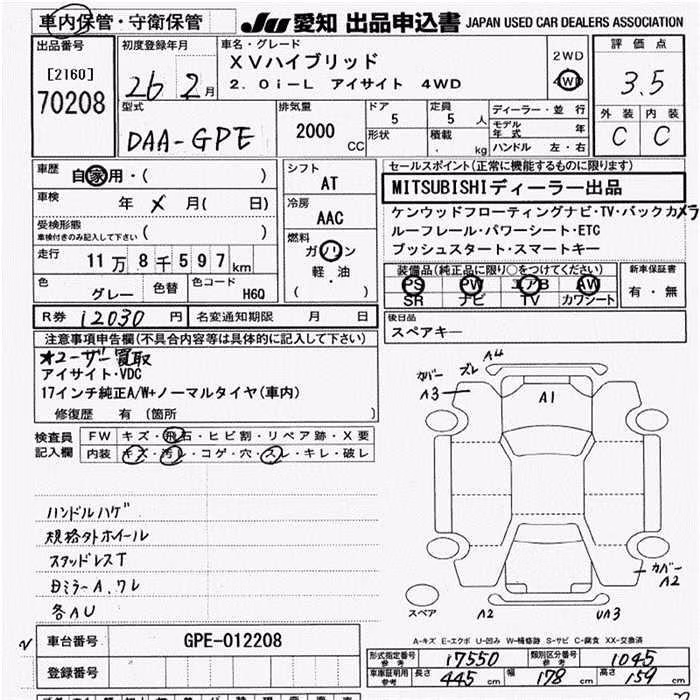 車内保管・守衛保管
JU 愛知 出品申込書 JAPAN USED CAR DEALERS ASSOCIATION
出品番号
[2160]
70208
初度登録年月
26 2月
車名・グレード
XVハイブリッド
2.0i-L アイサイト 4WD
2WD
4WD
評価点
3.5
外装 内装
C C
型式
DAA-GPE
排気量
2000 CC
ドア
5
定員
5 人
形状
積載
kg
ディーラー・並行
モデル年式 年
ハンドル 左・右
車歴
自家用・( )
車検
年 メ 月( 日)
受検形態
車検付きのみ記入して下さい ( )
走行
11万8千597km
色
グレー
色替
色コード
H6Q
シフト
AT
冷房
AAC
燃料
ガソリン
軽・油
( )
セールスポイント(正常に機能するものに限ります)
MITSUBISHIディーラー出品
ケンウッドフローティングナビ・TV・バックカメラ
ルーフレール・パワーシート・ETC
プッシュスタート・スマートキー
装備品(純正品に限り○をつけてください)
PS PW エアB AW
SR ナビ TV カワシート
新車保証書
有・無
R券 12030 円
名変通知期限 月 日
後日品
スペアキー
注意事項申告欄(不具合内容等は具体的に記入して下さい)
*ユーザー買取
アイサイト・VDC
17インチ純正A/W+ノーマルタイヤ(車内)
修復歴 有 (箇所 )
検査員
記入欄
FW キズ・飛石・ヒビ割・リペア跡・X要
内装 キズ・汚レ・コゲ・穴・スレ・キレ・破レ
ハンドルハゲ
規格外ホイール
スタッドレスT
日ミラーA、ワレ
各AU
カバー ズレ A4
A3
A1
カバー
A2
スペア
A2
UA3
A-キズ E-エクボ U-凹み W-補修跡 S-サビ C-腐食 XX-交換済
車台番号
GPE-012208
登録番号
形式指定番号
参考
17550
類別区分番号
参考
1045
車庫証明用
参考
長さ 445 cm
幅 178 cm
高さ 159 cm